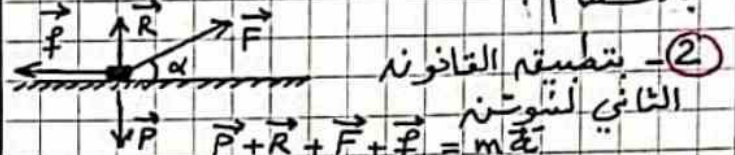 f⃗ R⃗ F⃗
α
② - بتطبيق القانون
الثاني لنيوتن
P⃗
P⃗ + R⃗ + F⃗ + f⃗ = m a⃗